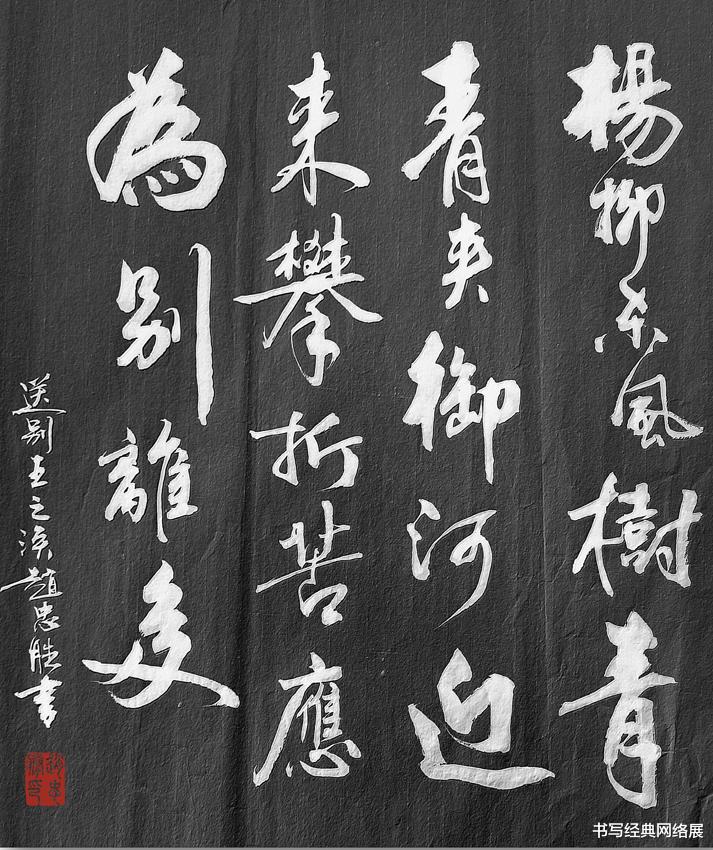 楊柳东風樹青
青夹御河近
来攀折苦應
為别離多
送别王之涣趙忠胜書
书写经典网络展